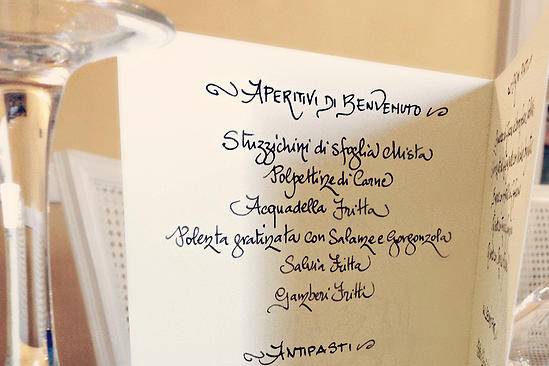 APERITIVI DI BENVENUTO
Stuzzichini di sfoglia Mista
Polpettine di Carne
Acquadella Fritta
Polenta gratinata con Salame e Gorgonzola
Salvia Fritta
Gamberi Fritti
ANTIPASTI